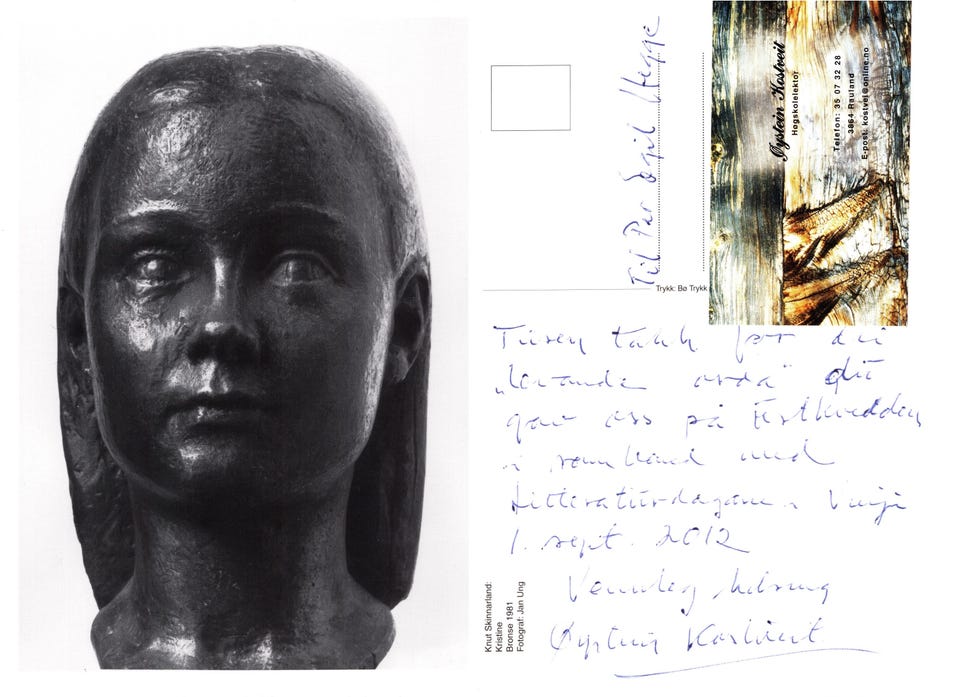 Til Per Egil Hegge
Trykk: Bø Trykk
Øystein Kostveit
Høgskolelektor
Telefon: 35 07 32 28
3864 Rauland
E-post: kostvei@online.no
Tusen takk for dei
„levande orda" du
gav oss på Festkvelden
i samband med
Litteraturdagane i Vinje
1. sept. 2012
Vennleg helsing
Øystein Kostveit
Knut Skinnarland:
Kristine
Bronse 1981
Fotograf: Jan Ung